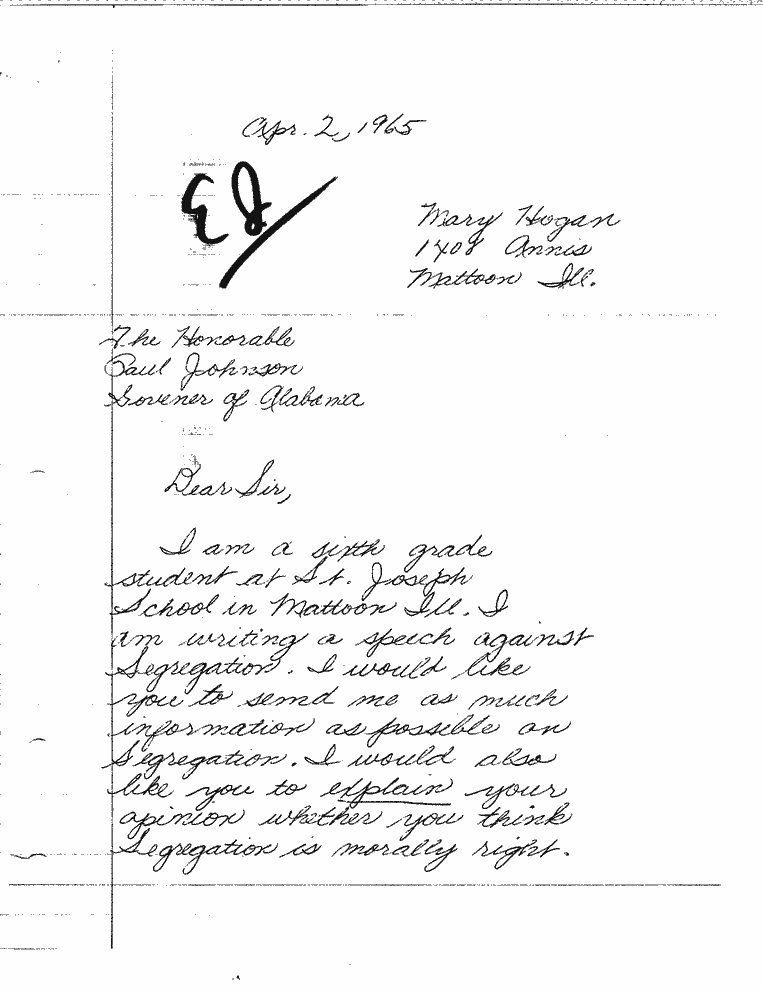 Apr. 2, 1965
EJ/
Mary Hogan
1408 Annis
Mattoon Ill.
The Honorable
Paul Johnson
Govener of Alabama
Dear Sir,
I am a sixth grade
student at St. Joseph
School in Mattoon Ill. I
am writing a speech against
Segregation. I would like
you to send me as much
information as possible on
Segregation. I would also
like you to explain your
opinion whether you think
Segregation is morally right.